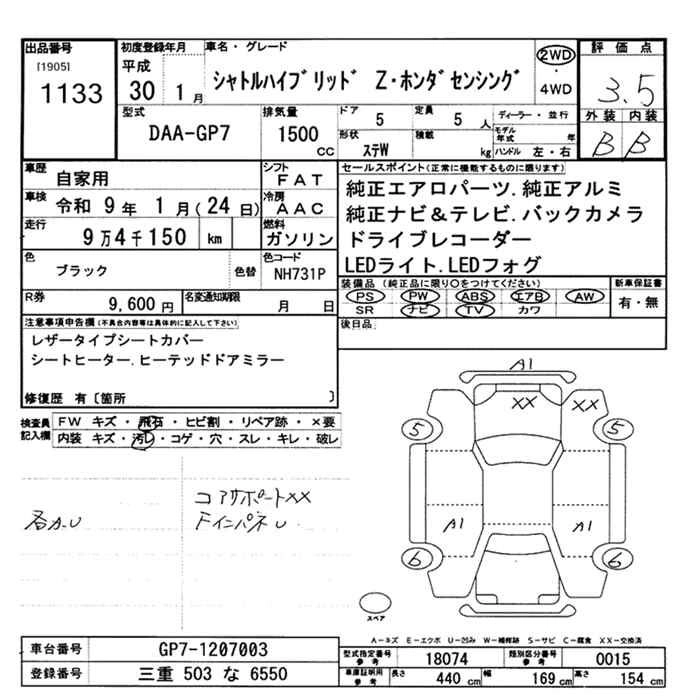 出品番号
[1905]
1133
初度登録年月
平成
30 1月
車名・グレード
シャトルハイブリッド Z・ホンダセンシング
2WD
・
4WD
評価点
3.5
外装 内装
B B
型式
DAA-GP7
排気量
1500
CC
ドア
5
定員
5 人
形状
ステW
積載
kg
ディーラー・並行
モデル年式 年
ハンドル 左・右
車歴
自家用
シフト
FAT
車検
令和 9年 1月(24日)
冷房
AAC
走行
9万4千150 km
燃料
ガソリン
色
ブラック
色替
色コード
NH731P
R券
9,600 円
名変通知期限
月 日
セールスポイント(正常に機能するものに限ります)
純正エアロパーツ.純正アルミ
純正ナビ&テレビ.バックカメラ
ドライブレコーダー
LEDライト.LEDフォグ
装備品(純正品に限り○をつけてください)
PS PW ABS エアB AW
SR ナビ TV カワ
新車保証書
有・無
後日品
注意事項申告欄(不具合内容等は具体的に記入して下さい)
レザータイプシートカバー
シートヒーター.ヒーテッドドアミラー
修復歴 有〔箇所 〕
検査員
記入欄
FW キズ・飛石・ヒビ割・リペア跡・×要
内装 キズ・汚レ・コゲ・穴・スレ・キレ・破レ
コアサポートXX
各カU
FインパネU
A1
XX XX
5 5
A1 A1
6 6
スペア
A―キズ E―エクボ U―凹み W―補修跡 S―サビ C―腐食 XX―交換済
車台番号
GP7-1207003
登録番号
三重 503 な 6550
型式指定番号
参考
18074
類別区分番号
参考
0015
車庫証明用
参考
長さ
440 cm
幅
169 cm
高さ
154 cm